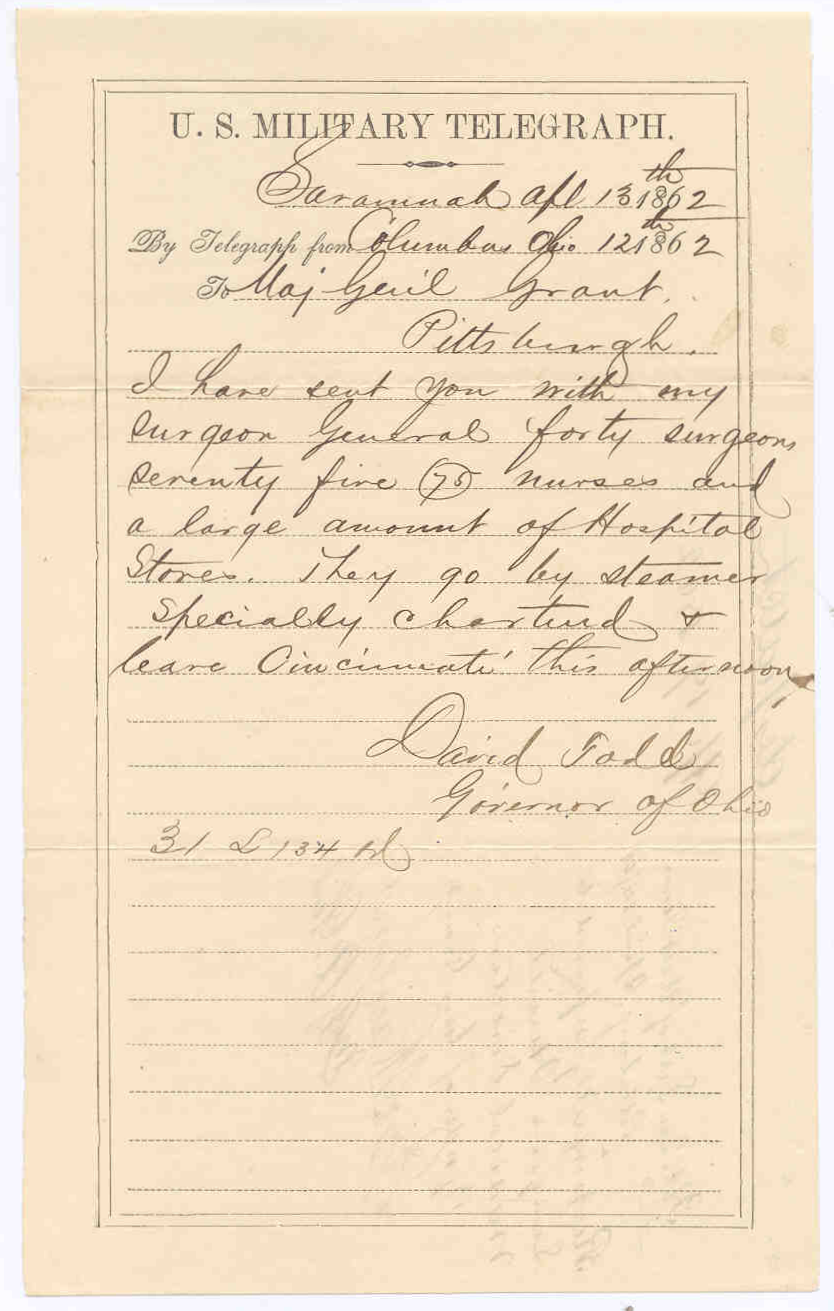 U. S. MILITARY TELEGRAPH.
Savannah Apl 13th 1862
By Telegraph from Columbus Ohio 12th 1862
To Maj Genl Grant.
Pittsburgh.
I have sent you with my
surgeon General forty surgeons
seventy five (75) nurses and
a large amount of Hospital
Stores. They go by steamer
specially charterd &
leave Cincinnati this afternoon
David Todd
Governor of Ohio
31 134